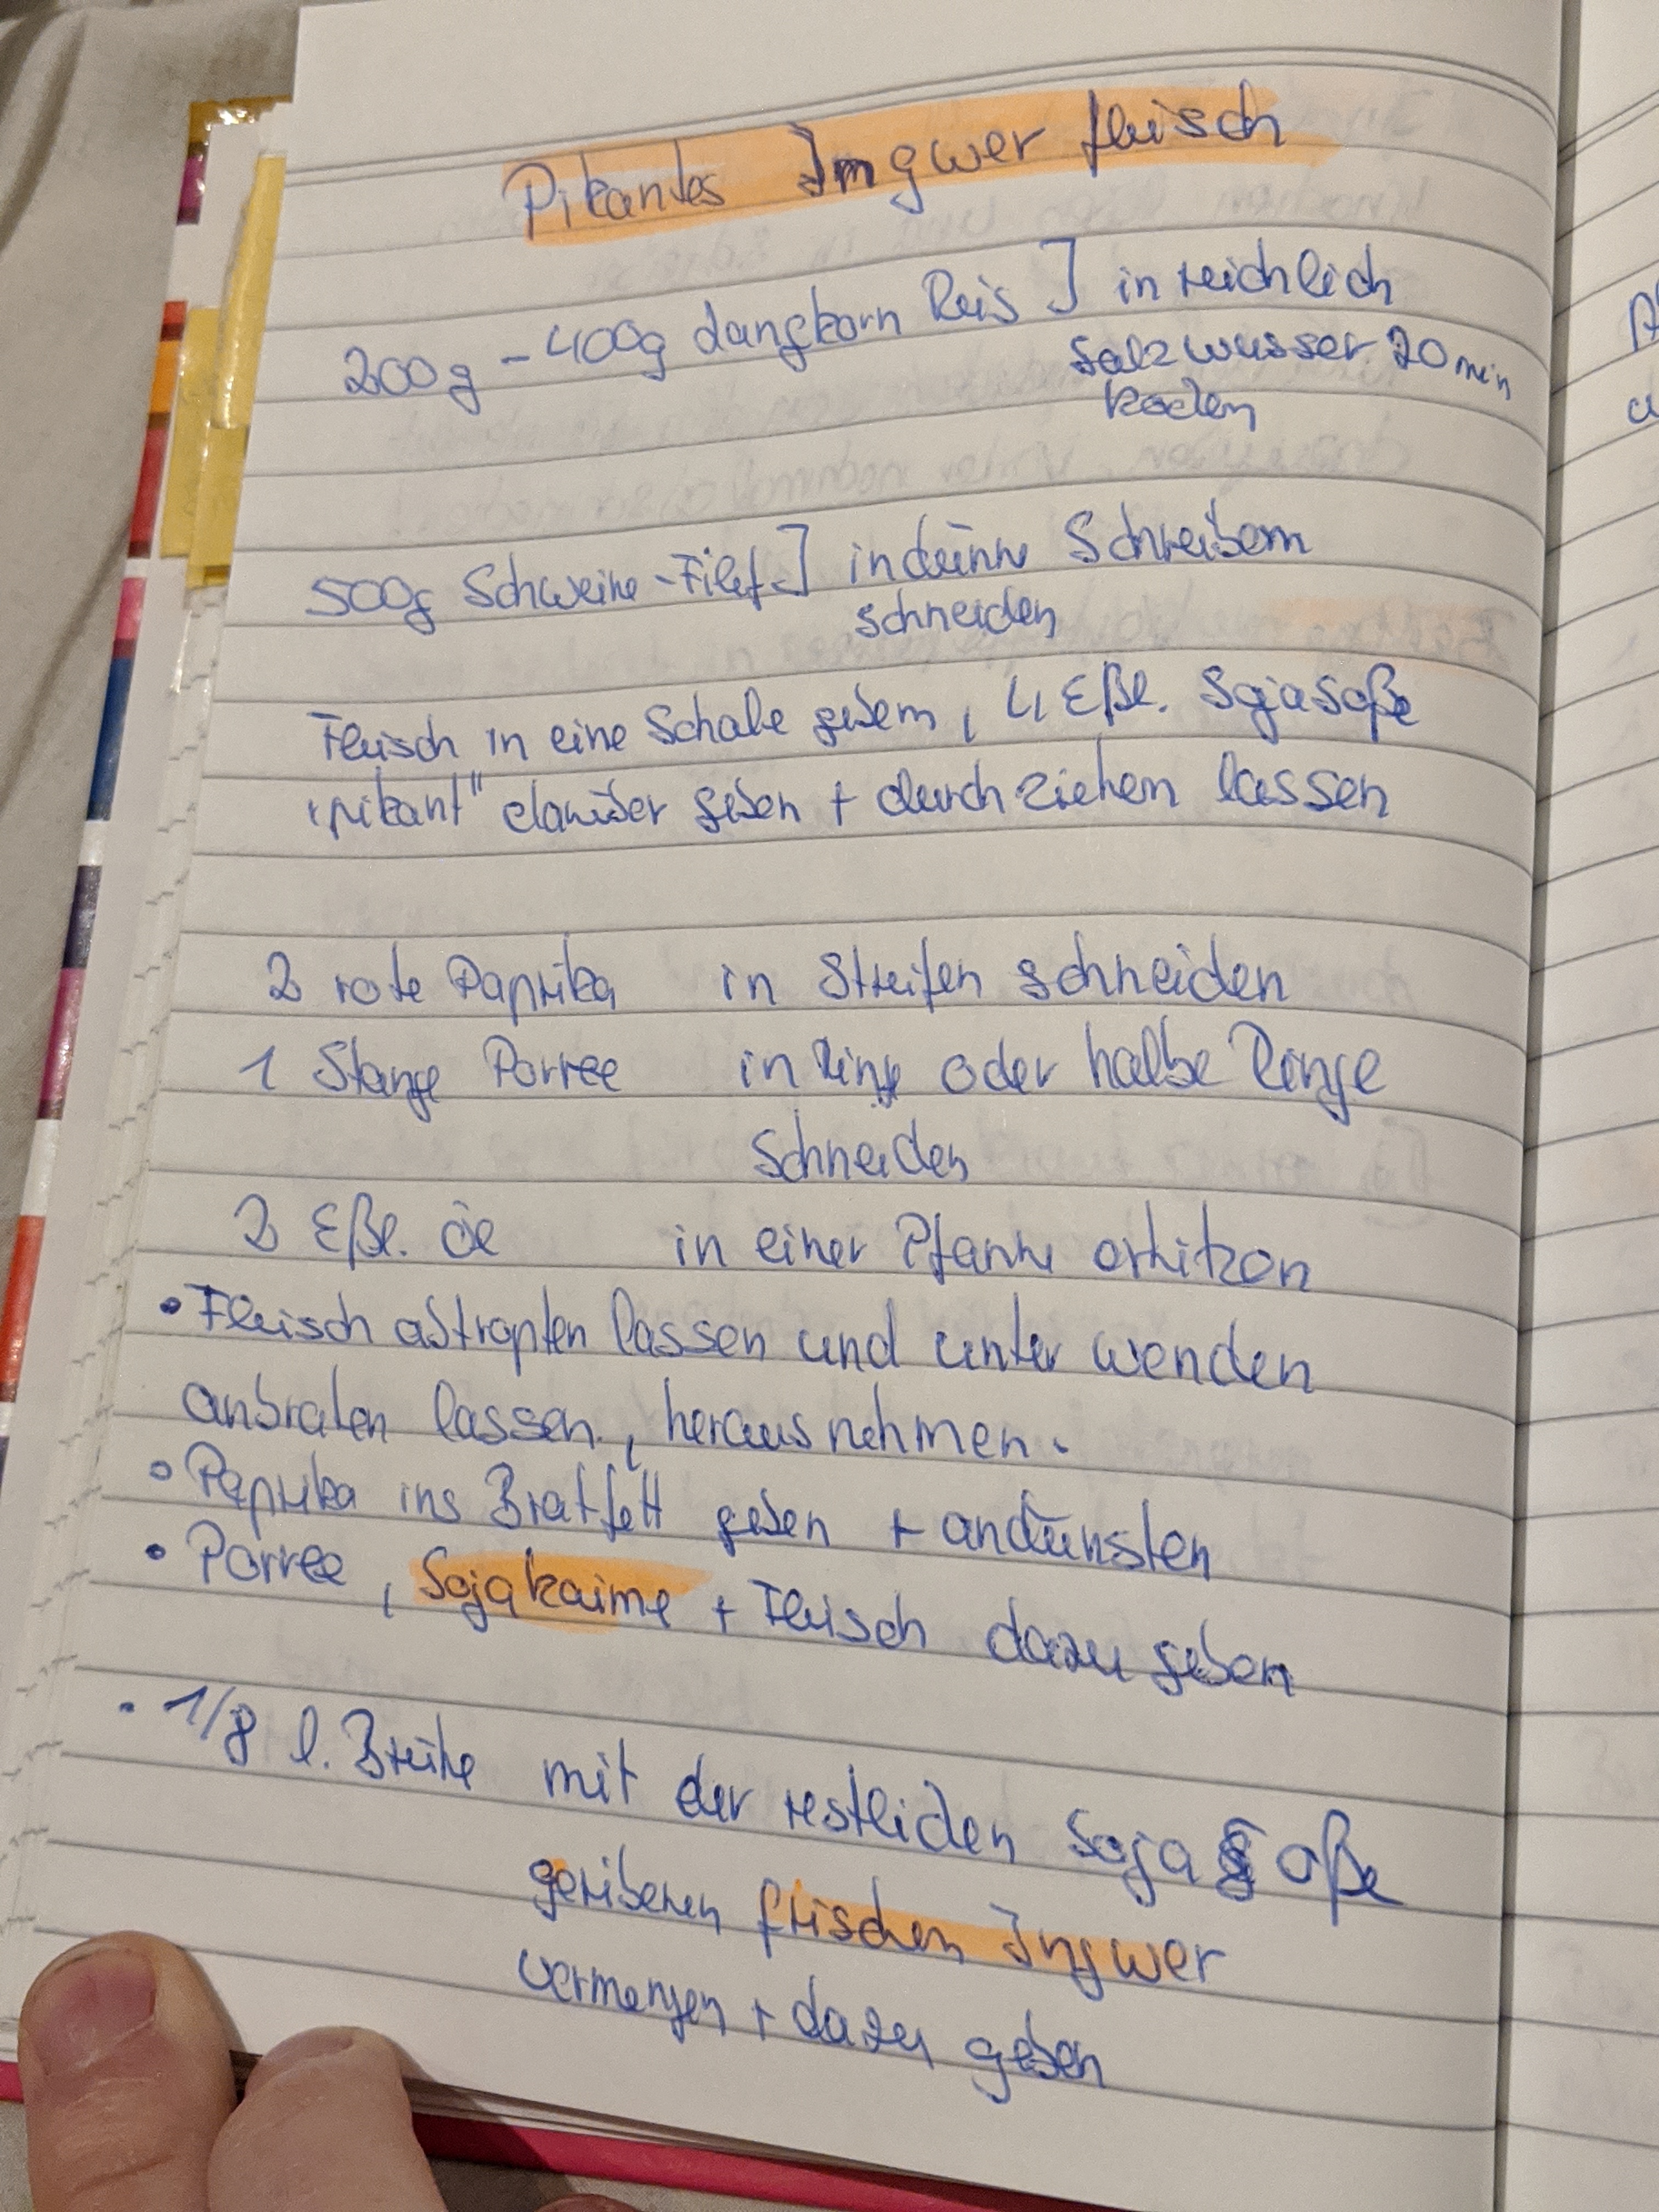 Pikantes Ingwer fleisch
200g - 400g Langkorn Reis ] in reichlich
Salzwasser 20 min
kochen
500g Schweine-Filet ] in dünne Schreiben
schneiden
Fleisch in eine Schale geben, 4 Eßl. Sojasoße
"pikant" darüber geben + durchziehen lassen
2 rote Paprika in Streifen schneiden
1 Stange Porree in Ringe oder halbe Ringe
schneiden
2 Eßl. Öl in einer Pfanne erhitzen
• Fleisch abtropfen lassen und unter wenden
anbraten lassen, heraus nehmen.
• Paprika ins Bratfett geben + andünsten
• Porree, Sojakeime + Fleisch dazu geben
• 1/8 l. Brühe mit der restlichen Soja Soße
geriebenen frischen Ingwer
vermengen + dazu geben